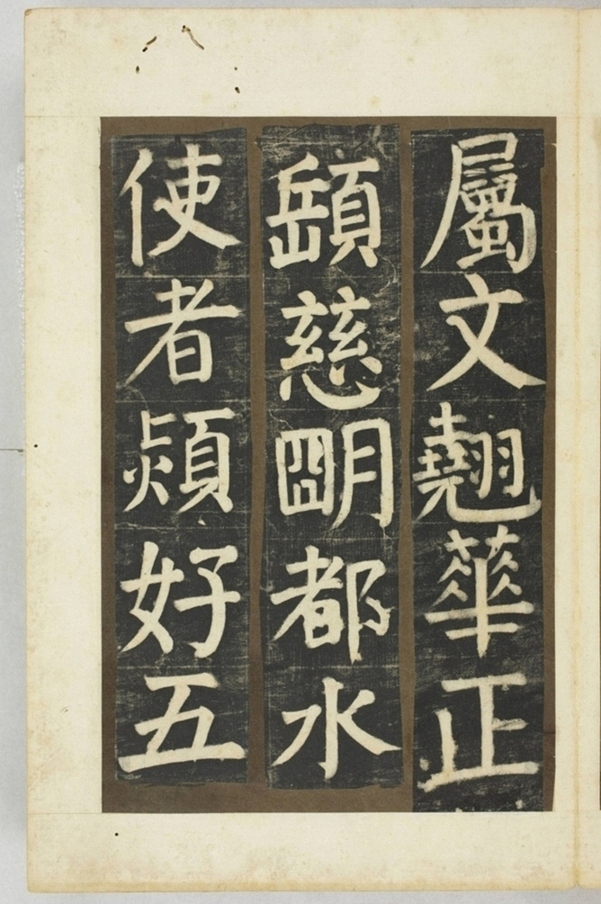 屬文翹華正
慈朙都水
使者熲好五